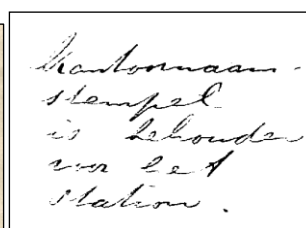 Kantoornaam-
stempel
is behouden
voor het
station.